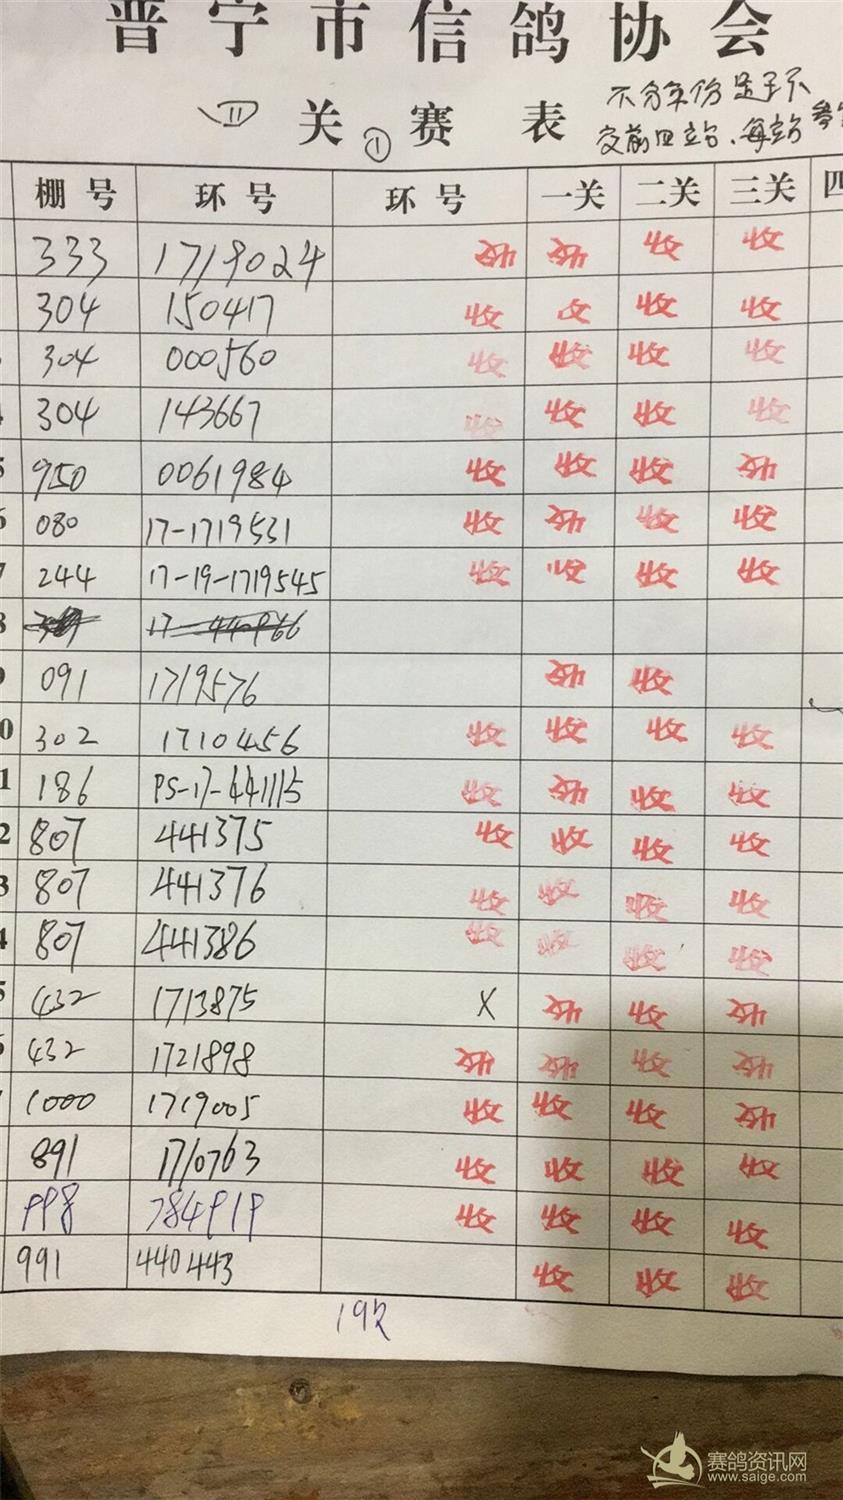 普宁市信鸽协会
II 关 赛 表
①
不分年份 足环不
交前四站、每站参
棚号 环号 环号 一关 二关 三关 四
333 1719024 收 收 收 收
304 150417 收 收 收 收
304 000560 收 收 收 收
304 143667 收 收 收 收
5 950 0061984 收 收 收 收
6 080 17-1719531 收 收 收 收
7 244 17-19-1719545 收 收 收 收
8 17-440966
9 091 1719576 收 收
0 302 1710456 收 收 收 收
1 186 PS-17-441115 收 收 收 收
2 807 441375 收 收 收 收
3 807 441376 收 收 收 收
4 807 441386 收 收 收 收
5 432 1713875 X 收 收 收
6 432 1721898 收 收 收 收
1000 1719005 收 收 收 收
891 1710763 收 收 收 收
998 784919 收 收 收 收
991 440443 收 收 收
19
赛鸽资讯网
www.saige.com